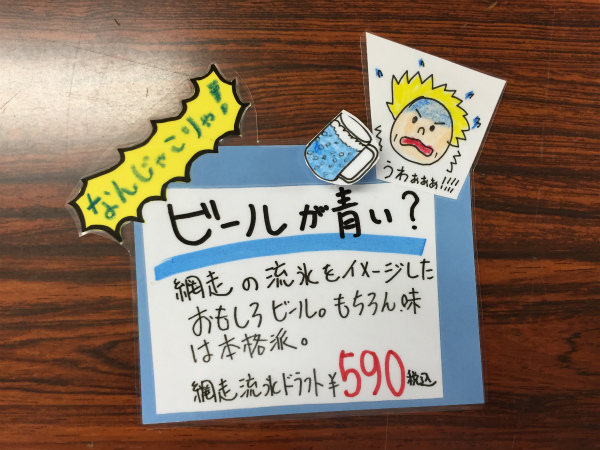 なんじゃこりゃ!
うわぁぁぁ!!!!
ビールが青い?
網走の流氷をイメージした
おもしろビール。もちろん味
は本格派。
網走流氷ドラフト¥590税込